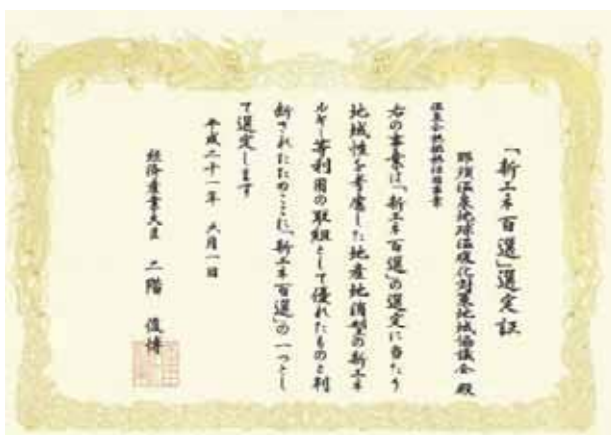 「新エネ百選」選定証
那須温泉地球温暖化対策地域協議会 殿
右の事業は「新エネ百選」の選定に当たり
地域性を考慮した地産地消型の新エネ
ルギー等利用の取組として優れたものと判
断されたためここに「新エネ百選」の一つとし
て選定します
平成二十一年 六月一日
経済産業大臣 二階 俊博